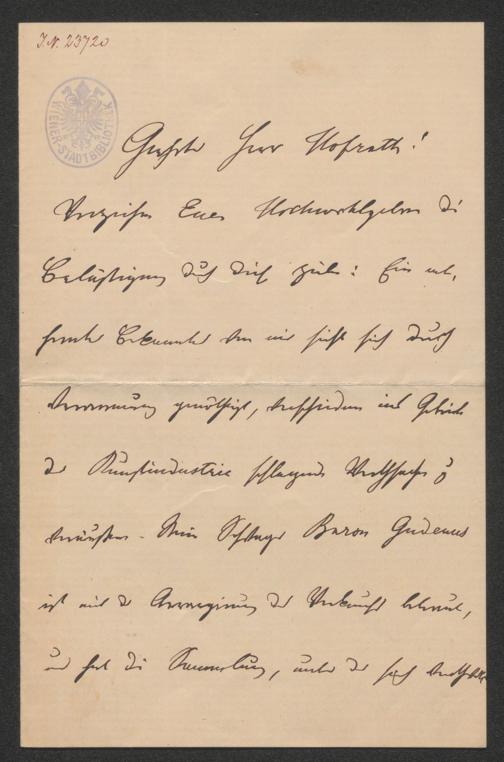 I.N. 23720
WIENER-STADTBIBLIOTHEK
Geehrter Herr Hofrath!
Verzeihen Euer Hochwohlgeboren die
Belästigung durch diese Zeilen: Ein ent-
fernter Bekannter von mir sieht sich durch
Verarmung genöthigt, verschiedene ins Gebiet
der Kunstindustrie schlagende Werthsachen zu
veräußern. Mein Schwager Baron Gudenus
ist mit der Arrangirung des Verkaufs betraut,
und hat die Sammlung, unter der sich